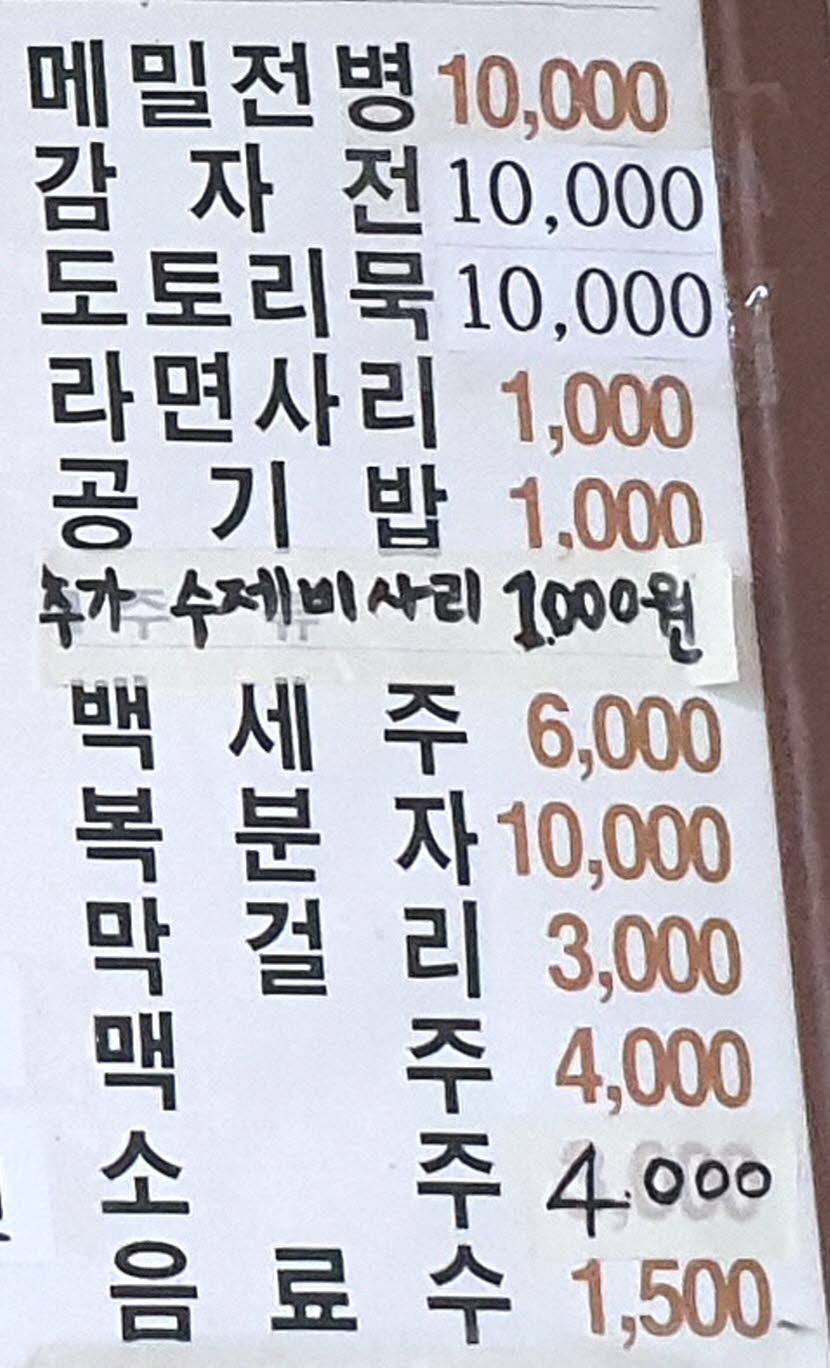 메밀전병 10,000
감자전 10,000
도토리묵 10,000
라면사리 1,000
공기밥 1,000
추가 수제비사리 1.000원
백세주 6,000
복분자 10,000
막걸리 3,000
맥주 4,000
소주 4.000
음료수 1,500